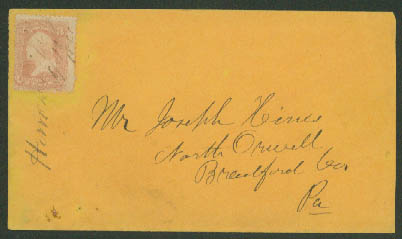 Mr Joseph Hines
North Orwell
Bradford Co
Pa